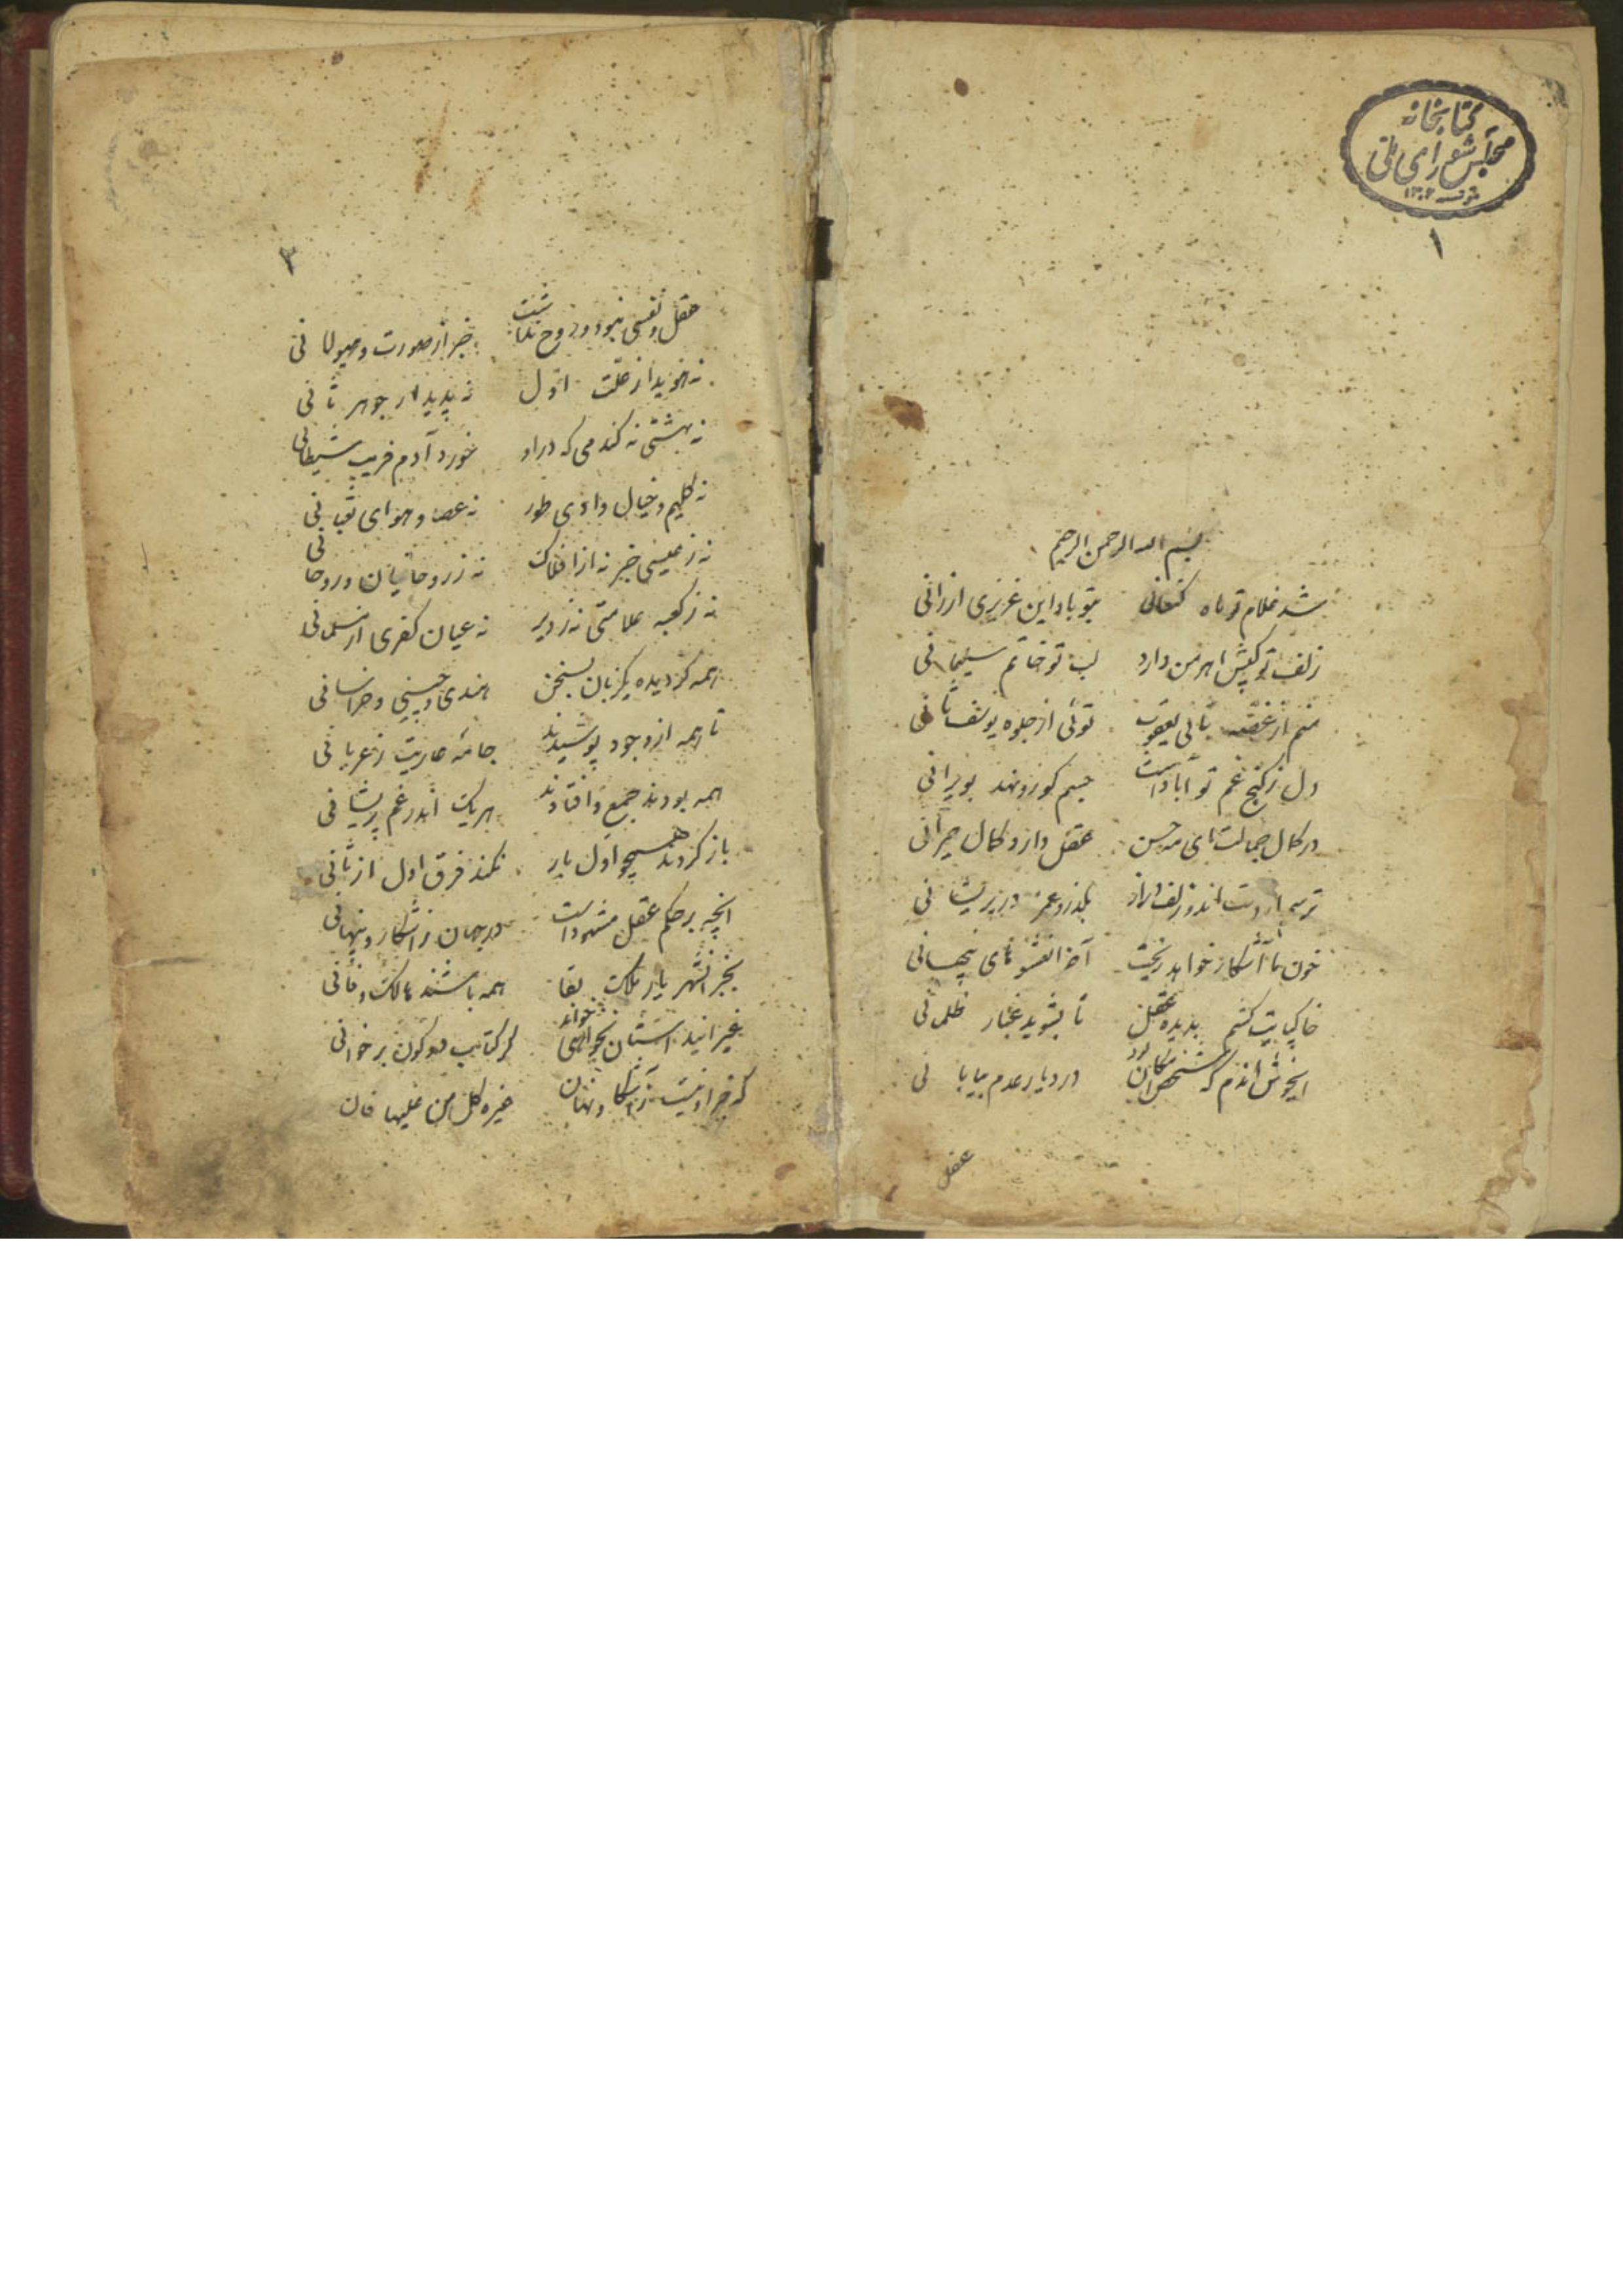 کتابخانه
مجلس شورای ملی
۱
بسم الله الرحمن الرحیم
شد غلام تو ماه کنعانی بتو باد این عزیزی ارزانی
زلف تو کیش اهرمن دارد لب تو خاتم سلیمانی
منم از غصه ثانی یعقوب توئی از جلوه یوسف ثانی
دل ز گنج غم تو آبادست جسم کو رو نهد بویرانی
در کمال جمالت ای مه حسن عقل دارد کمال حیرانی
ترسم از دست اندو زلف دراز بگذرد عمر در پریشانی
خون ما آشکار خواهد ریخت آخر انعشوهای پنهانی
خاکپایت کشم بدیده عقل تا بشوید غبار ظلمانی
ایخوش اندم که شخص امکان بود در دیار عدم بیابانی
عقل
۲
عقل و نفسی نبود و روح نداشت خبر از صورت و هیولانی
نه هویدا ز علت اول نه پدیدار جوهر ثانی
نه بهشتی نه گندمی که در او خورد آدم فریب شیطانی
نه کلیم و خیال وادی طور نه عصا و هوای ثعبانی
نه ز عیسی خبر نه از افلاک نه ز روحانیان و روحانی
نه ز کعبه علامتی نه ز دیر نه عیان کفری از مسلمانی
همه گردیده یکزبان بسخن هندی و چینی و خراسانی
تا همه از وجود پوشیدند جامه عاریت ز عریانی
همه بودند جمع و افتادند هریک اندر غم پریشانی
باز گردند همچو اول بار نکند فرق اول از ثانی
انچه بر حکم عقل مشهود است در جهان ز آشکار و پنهانی
بجز انشهریار ملک بقا همه باشند هالک و فانی
غیر انید استان نخواهی خواند گر کتاب دو کون بر خوانی
که جز او نیست آشکار و نهان غیره کل من علیها فان